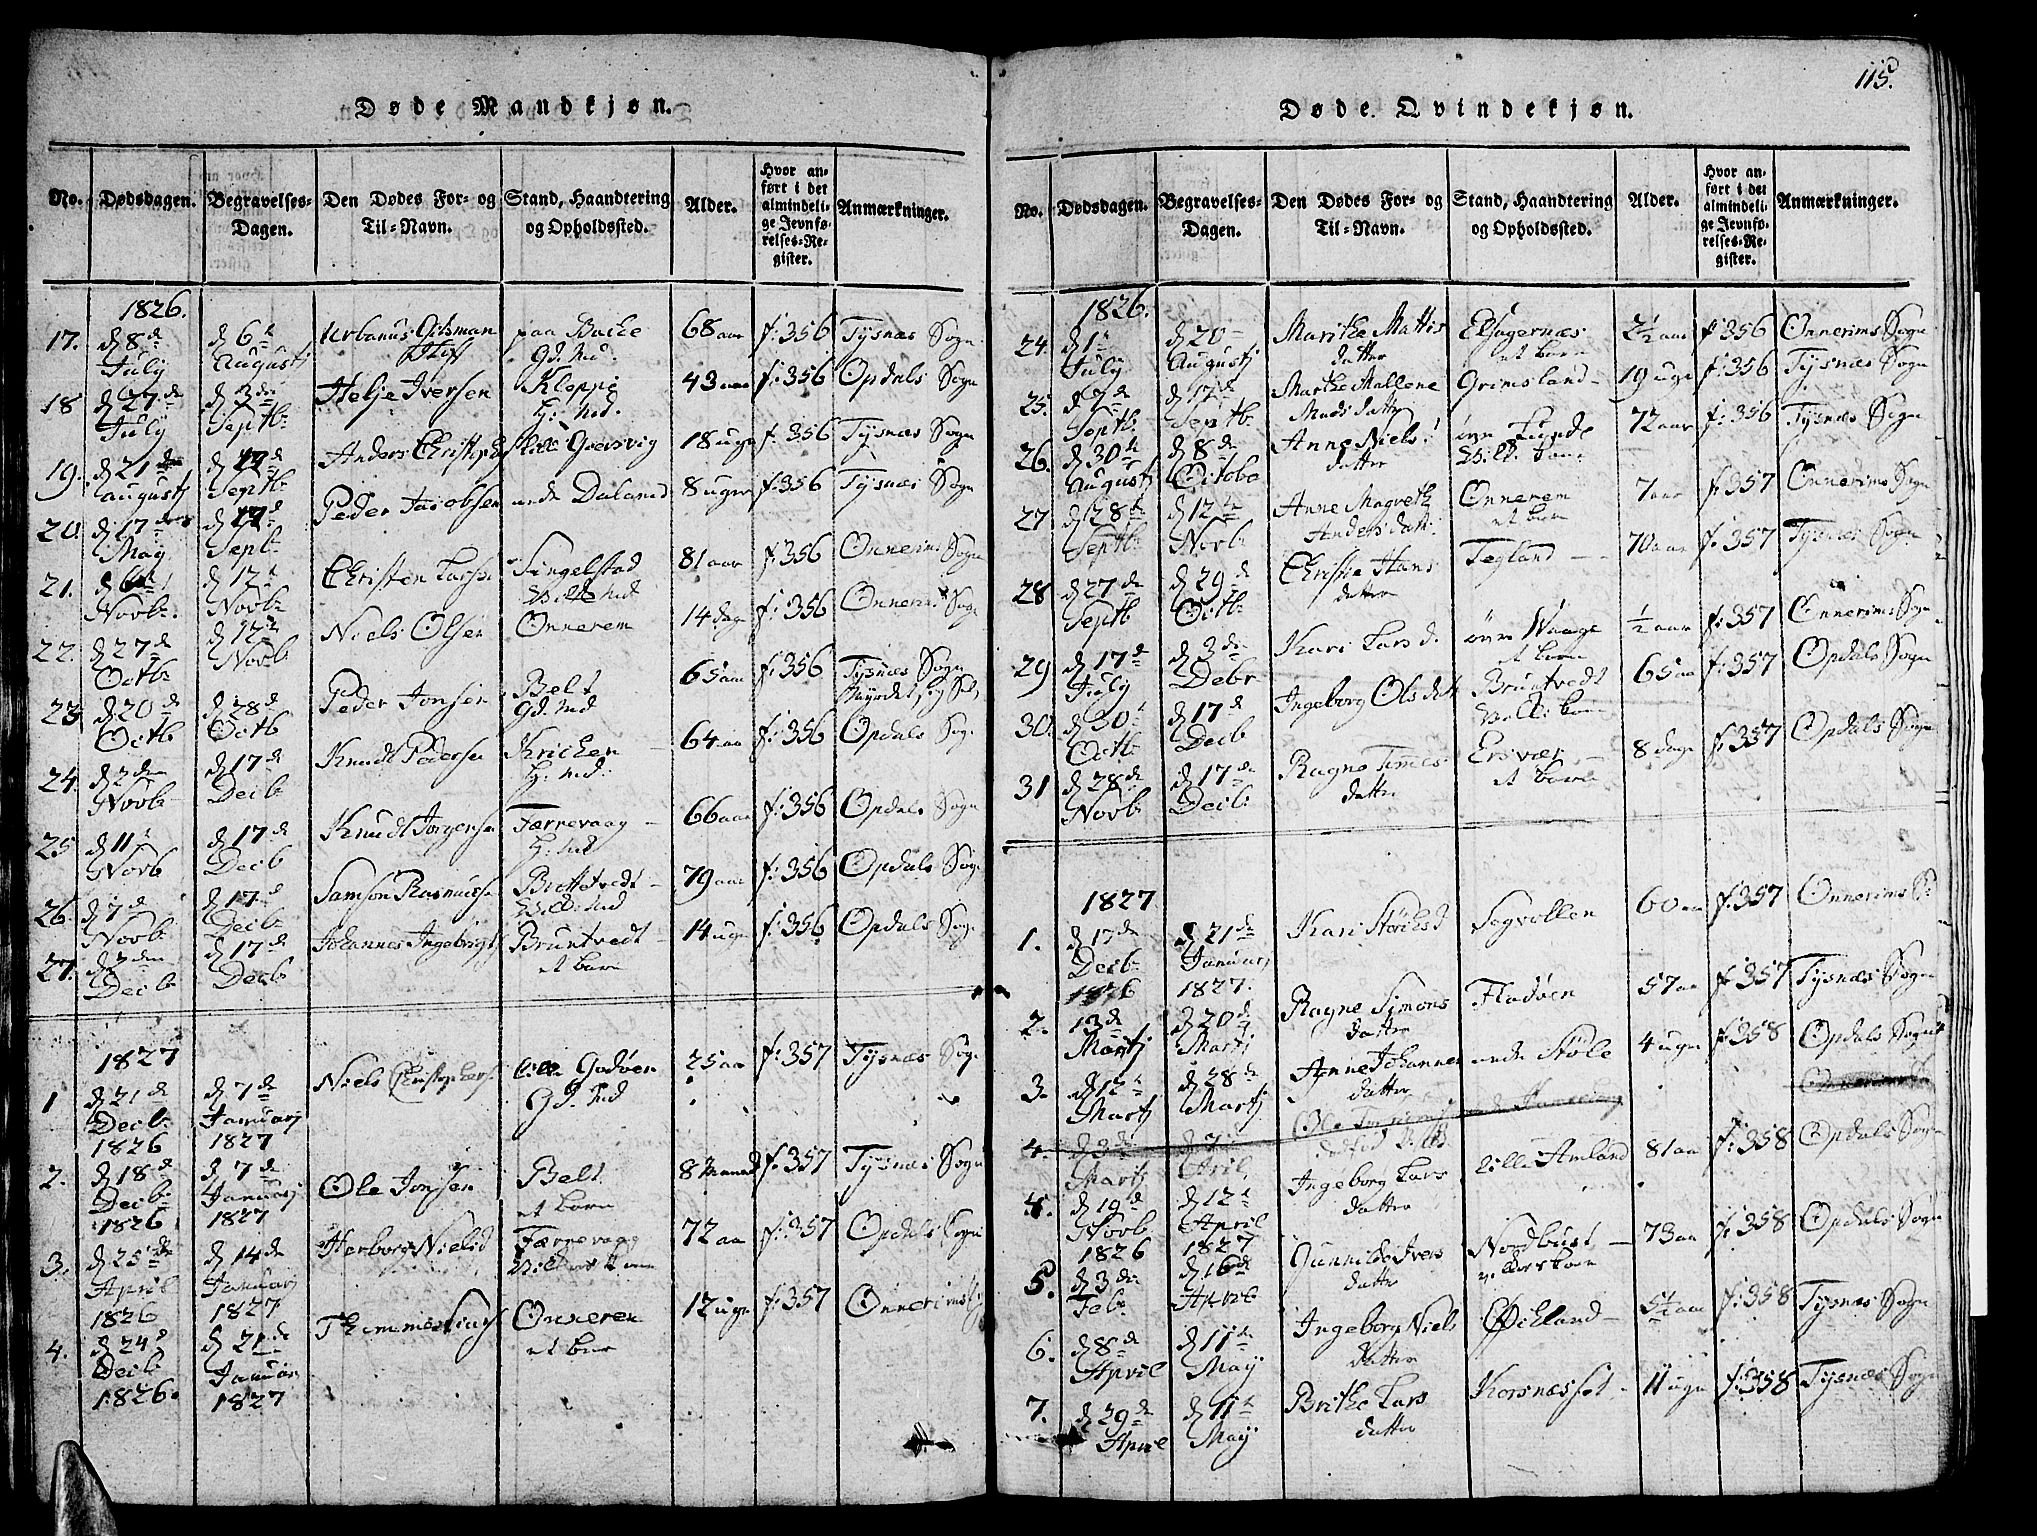 115.
Døde Mandkjøn.
No. Dødsdagen. Begravelses-Dagen. Den Dødes For- og Til-Navn. Stand, Haandtering og Opholdssted. Alder. Hvor anført i det almindelige Jevnførelses-Register. Anmærkninger.
1826.
17. d 8de July d 6te Augustj Urbanus paa Backe Gd. Md. 68 aar f: 356 Tysnæs Sogn
18 d 27de July d 3die Septb: Helje Iversen Kleppe H: Md. 43 aar f: 356 Opdals Sogn
19. d 21de augustj d Septb: Anders 18 uger f: 356 Tysnæs Sogn
20. d 17de May d Septb: Peder Jacobsen nedre Daland 8 uger f: 356 Tysnæs Sogn
21. d 6te Novb: d 12te Novb: Christen Larsen Singelstad Md 81 aar f: 356 Onnerims Sogn
22. d 27de Octb: d 12te Novb Niels Olsen Onnerem 14 dage f: 356 Onnerims Sogn
23 d 20de Octb d 28de Octb Peder Jonsen Belt Gd. Md 65 aar f: 356 Tysnæs Sogn
24. d 2den Novb d 17de Decb Knudt Pedersen H: Md: 64 aar f: 356 Opdals Sogn
25 d 11te Novb d 17de Decb Knudt Jørgensen Færnevaag H: Md 66 aar f: 356 Opdals Sogn
26. d 7de Novb d 17de Decb: Samson Rasmussen Md 79 aar f: 356 Opdals Sogn
27. d 2den Decb: d 17de Decb: Johannes Bruntvedt et barn 14 uger f: 356 Opdals Sogn
1827
1 d 21de Decb: 1826 d 7de Januarj 1827 Niels Christophers: Godøen Gd. Md 25 aar f: 357 Tysnæs Sogn
2. d 18de Decb: 1826 d 7de Januarj 1827 Ole Jonsen Belt et barn 8 Maaned f: 357 Tysnæs Sogn
3. d 25de April 1826 d 14de Januarj 1827 Herborg Nielsd Færnevaag 72 aar f: 357 Opdals Sogn
4. d 24de Decb 1826. d 21de Januarj 1827 Onneren et barn 12 uger f: 357 Onnerims
Døde Qvindekjøn.
No. Dødsdagen. Begravelses-Dagen. Den Dødes For- og Til-Navn. Stand, Haandtering og Opholdssted. Alder. Hvor anført i det almindelige Jevnførelses-Register. Anmærkninger.
1826.
24. d 1te July d 20 Augustj Marithe Mattis datter et barn 2½ aar f: 356 Onnerims Sogn
25. d 7de Septb: d 17de Septb: Marthe Mallene Mads datter Grimsland 19 uger f: 356 Tysnæs Sogn
26. d 30te augustj d 8de Octobr Anne Niels datter øvre Lunde 72 aar f: 356 Tysnæs Sogn
27 d 28de Septb: d 12te Novb: Anne Magreth Anders dat: Onnerem et barn 7 aar f: 357 Onnerims Sogn
28 d 27de Septb d 29de Octb: Christie Hans datter Tegland 70 aar f: 357 Tysnæs Sogn
29 d 17de July d 3die Debr Kari Lars d. øvre Waage et barn ½ aar f: 357 Onnerims Sogn
30. d 30te Octb: d 17de Decb Ingeborg Ols datt Bruntvedt 65 aar f: 357 Opdals Sogn
31 d 28de Novb d 17de Decb: Ragne datter Ersvær et barn 8 dage f: 357 Opdals Sogn
1827
1. d 17de Decb: 1826 d 21de Januarj 1827. Kari Segvollen 60 aar f: 357 Onnerims S:
2. 13de Martj d 20de Martj Ragne Simons datter Fladøen 57 aar f: 357 Tysnæs Sogn
3. d 12te Martj d 28de Martj Anne Johannes datter nedre Støle 4 uger f: 358 Opdals Sogn
4. d 3die Martj d April Ole
4. d 19de Novb 1826 d 12te April 1827 Ingeborg Lars datter lille Amland 81 aa f: 358 Opdals Sogn
5. d 3die Feb: d 16de April Gunnilde Ivers datter Nordbust 73 aa f: 358 Opdals Sogn
6. d 8de April d 11te May Ingeborg Niels datter Øieland 5½ aa f: 358 Tysnæs Sogn
7. d 29de April d 11te May Brithe Lars datter Korsnæsset 11 uger f: 358 Tysnæs Sogn